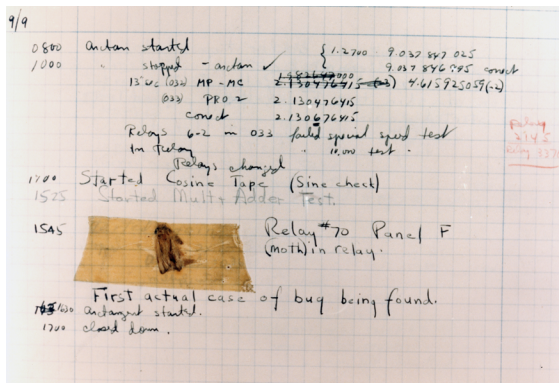 9/9
0800 arctan started
1000 " stopped - arctan ✓ { 1.2700 9.037 847 025
9.037 846 995 correct
13"uc (032) MP-MC 2.130476415 (-3) 4.615925059(-2)
(033) PRO 2 2.130476415
correct 2.130676415
Relays 6-2 in 033 failed special speed test
In Relay " 10.000 test.
Relays changed
1700 Started Cosine Tape (Sine check)
1525 Started Mult + Adder Test.
1545 Relay #70 Panel F
(moth) in relay.
First actual case of bug being found.
1630 arctangent started.
1700 closed down.
Relay
2145
Relay 3370